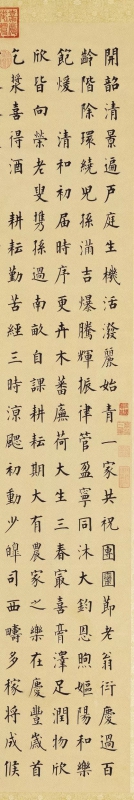 開韶清景遍戶庭生機活潑麗始青一家共祝團圞節老翁衍慶過百
齡階除環繞兒孫滿吉爆騰輝振律管盈寧同沐大鈞恩煦嫗陽和樂
飽煖 清和初屆時序更卉木蕃廡荷大生三春冣喜膏澤足潤物欣
欣皆向榮老叟攜孫過南畝自課耕耘期大有農家之樂在慶豐歲首
乞漿喜得酒 耕耘勤苦經三時涼颸初動少皞司西疇多稼將成候